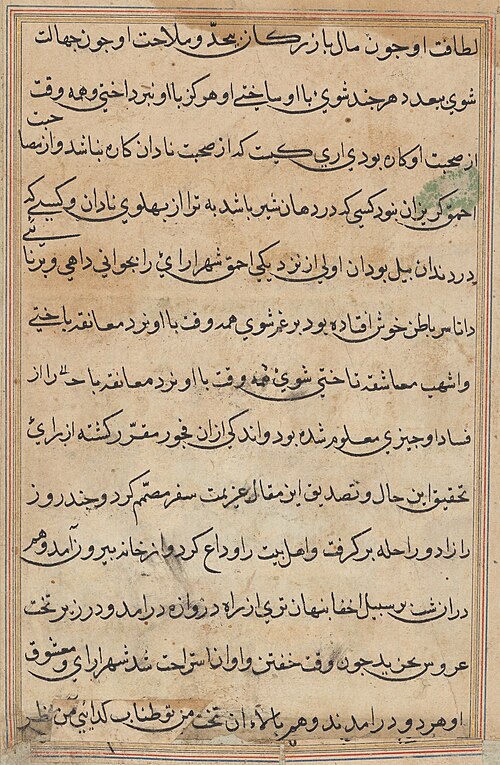 لطافت او جون مال بازرکان بیحد و ملاحت او جون جهالت
شوی بیعدد هر جند شوی با او ساختی او هرکز با او نبرداختی و همه وقت
از صحبت او کاره بودی اری کیست که از صحبت نادان کاره نباشد و از مصا
حبت
احمق کریزان نبود کسی که در دهان شیر باشد به تر از بهلوی نادان و کسی که
در دندان بیل بود ان اولی از نزدیکی احمق شهرارای را بجوانی داهی و برنا
ئی
دانا سر باطن خوش افتاده بود بر غم شوی همه وقت با او نرد معانقه باختی
و اشهب معاشقه تاختی شوی همه وقت با او نرد معانقه باختی را از
فساد او جیزی معلوم شده بود و اندکی ازان فجور مقرر کشته از برای
تحقیق این حال و تصدیق این مقال عزیمت سفر مصمم کرد و جند روز
را زاد و راحله بر کرفت و اهل بیت را وداع کرد و از خانه بیرون آمد و هم
دران شب بر سبیل اخفا بنهان تری از راه دروازه درامد و در زیر تخت
عروس بخزید جون وقت خفتن و اوان استراحت شد شهرارای و معشوق
او هر دو درامدند و هم بالاء ان تخت من تو طناب کدایی